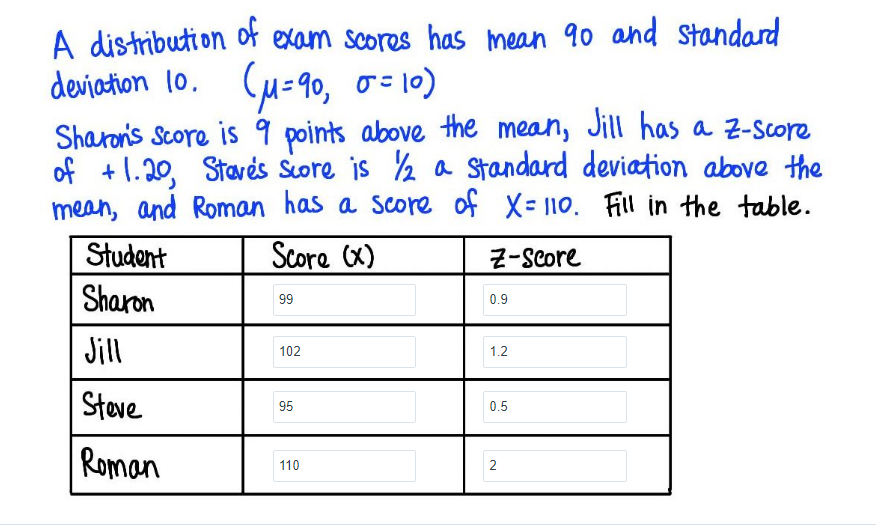 A distribution of exam scores has mean 90 and standard
deviation 10. (μ=90, σ=10)
Sharon's score is 9 points above the mean, Jill has a z-score
of +1.20, Steve's score is ½ a standard deviation above the
mean, and Roman has a score of X=110. Fill in the table.
Student Score (X) z-score
Sharon 99 0.9
Jill 102 1.2
Steve 95 0.5
Roman 110 2